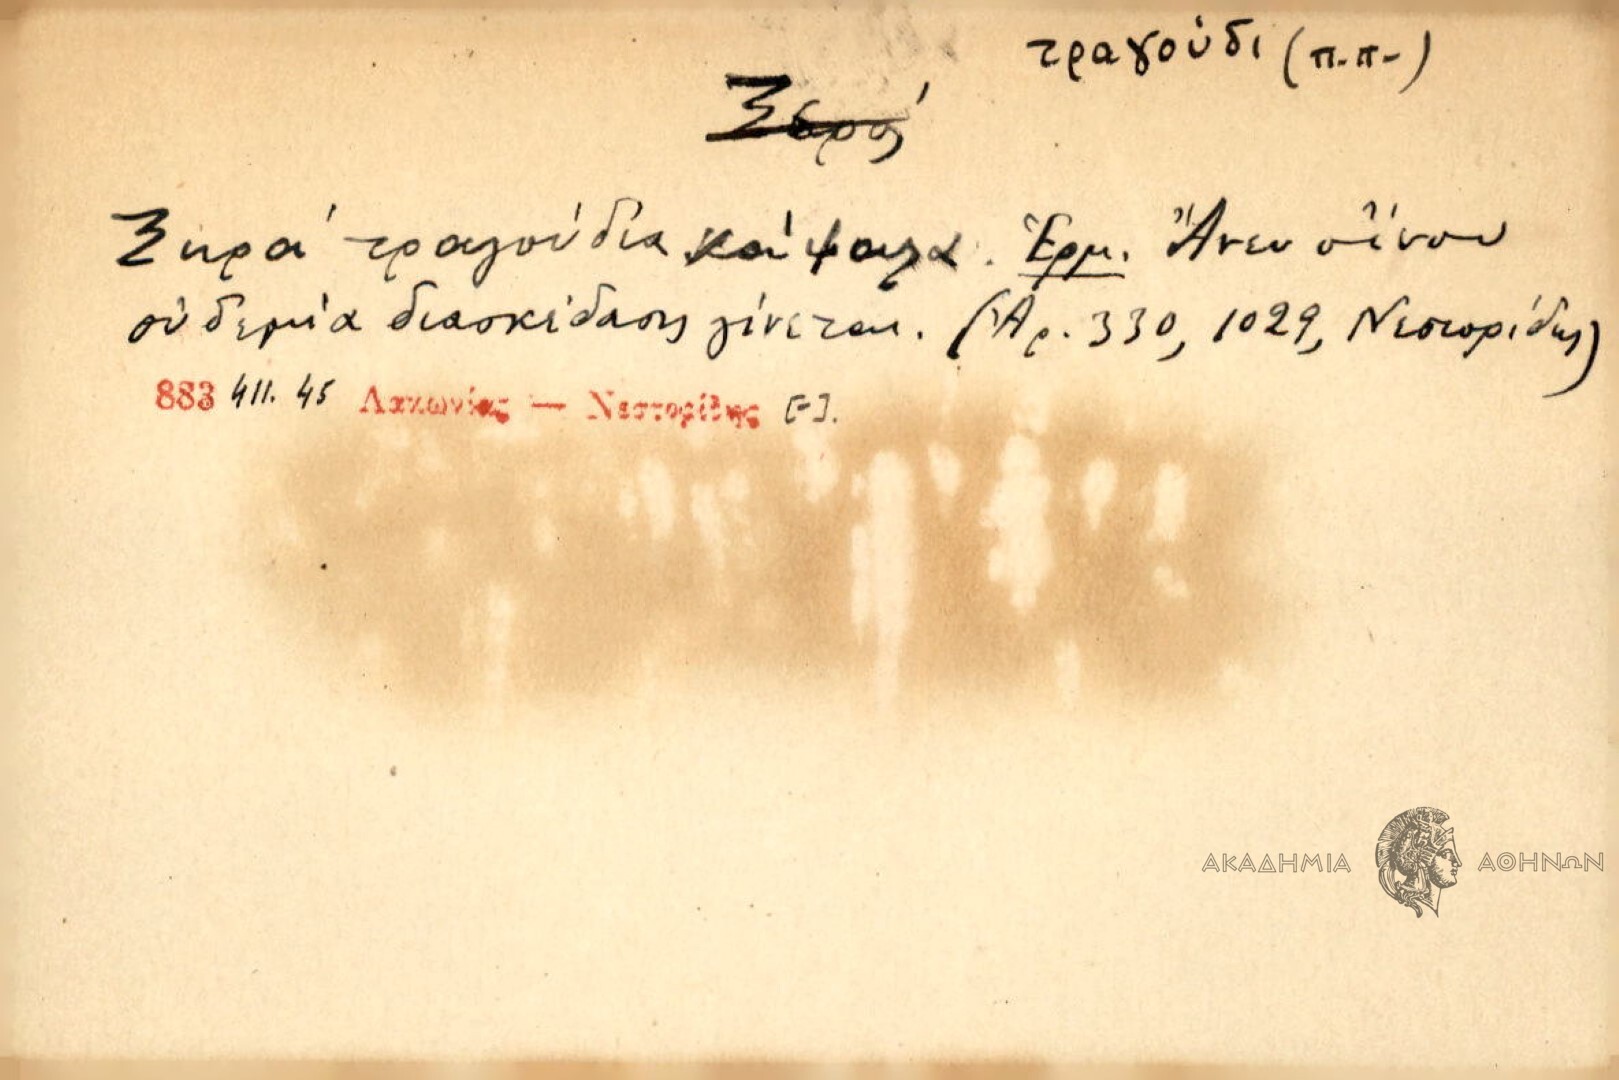 τραγούδι (π.π.)
Ξερός
Ξηρά τραγούδια καί ψαλα. Ἑρμ. Ἄνευ οἴνου
οὐδεμία διασκέδασις γίνεται. (Ἀρ. 330, 1029, Νεστορίδης)
883 411. 45 Λακωνίας — Νεστορίδης [-].
ΑΚΑΔΗΜΙΑ ΑΘΗΝΩΝ